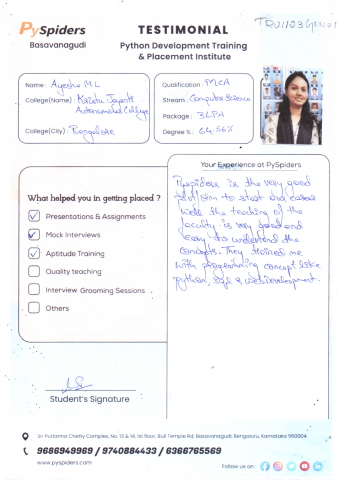 PySpiders
Basavanagudi
TESTIMONIAL
Python Development Training
& Placement Institute
Name: Ayesha M L
College(Name): Kristu Jayanti
Autonomous College
College(City): Bangalore
Qualification: MCA
Stream: Computer Science
Package: 3LPA
Degree %: 64.56%
What helped you in getting placed ?
Presentations & Assignments
Mock Interviews
Aptitude Training
Quality teaching
Interview Grooming Sessions
Others
Your Experience at PySpiders
Pyspiders is the very good
platform to start our career
well the teaching of the
faculty is very good and
easy to understand the
concepts. They trained me
with programming concept like
python, sql & web development.
Student's Signature
Sir Puttanna Chetty Complex, No. 13 & 14, 1st floor, Bull Temple Rd, Basavanagudi, Bengaluru, Karnataka 560004
9686949969 / 9740884433 / 6366765569
www.pyspiders.com
Follow us on :